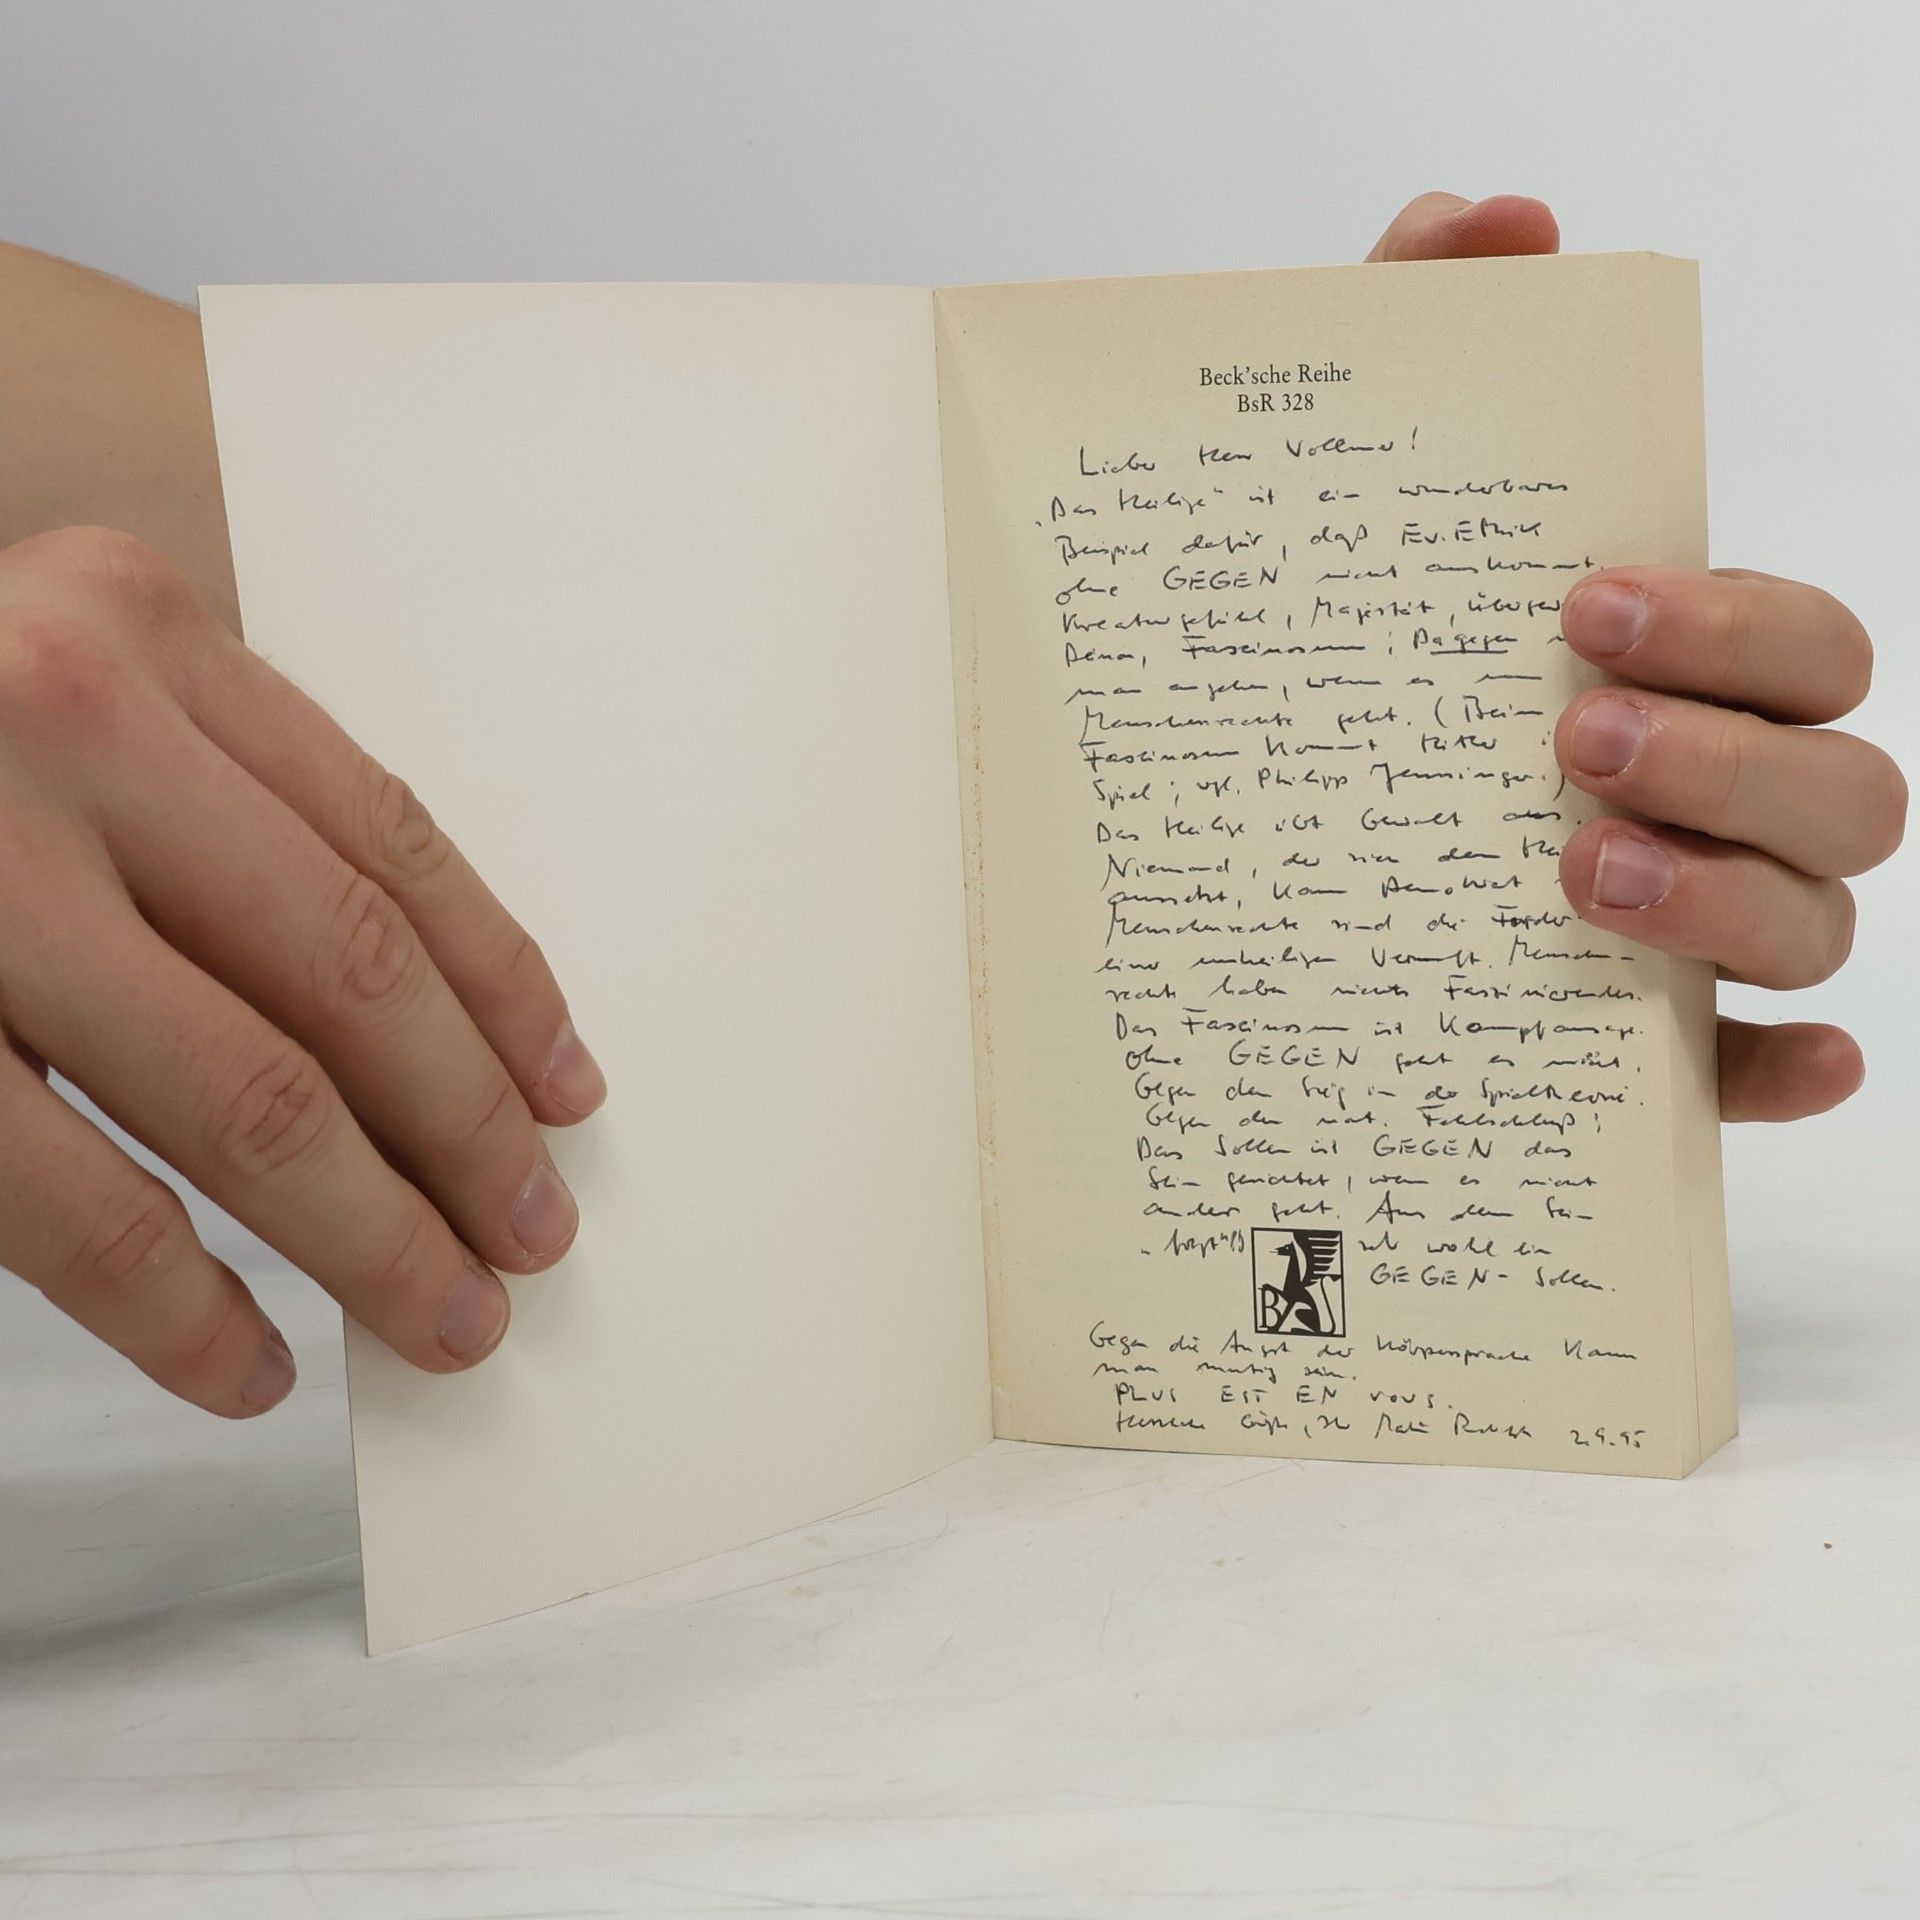 Beck'sche Reihe
BsR 328
Lieber Herr Vollmer!
„Das Heilige" ist ein wunderbares
Beispiel dafür, daß Ev. Ethik
ohne GEGEN nicht auskommt.
Kreaturgefühl, Majestät,
Fascinosum; Dagegen
man angehen, wenn es um
Menschenrechte geht. (Beim
Fascinosum kommt Hitler
Spiel; vgl. Philipp Jenninger.)
Das Heilige übt Gewalt aus.
Niemand, der sich dem
aussetzt, kann Demokrat
Menschenrechte sind die
einer unheiligen Vernunft. Menschen-
rechte haben nichts Faszinierendes.
Das Fascinosum ist Kampfansage.
Ohne GEGEN geht es nicht.
Gegen den Sieg in der Spieltheorie.
Gegen den nat. Fehlschluß;
Das Sollen ist GEGEN das
Sein gerichtet, wenn es nicht
anders geht. Aus dem Sein
„folgt" sehr wohl ein
GEGEN-Sollen.
BSR
Gegen die Angst der Körpersprache kann
man mutig sein.
PLUS EST EN VOUS.
Herzliche Grüße, Ihr 2.9.95